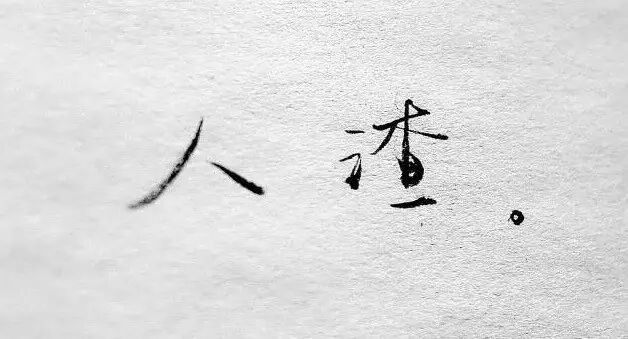 人渣。